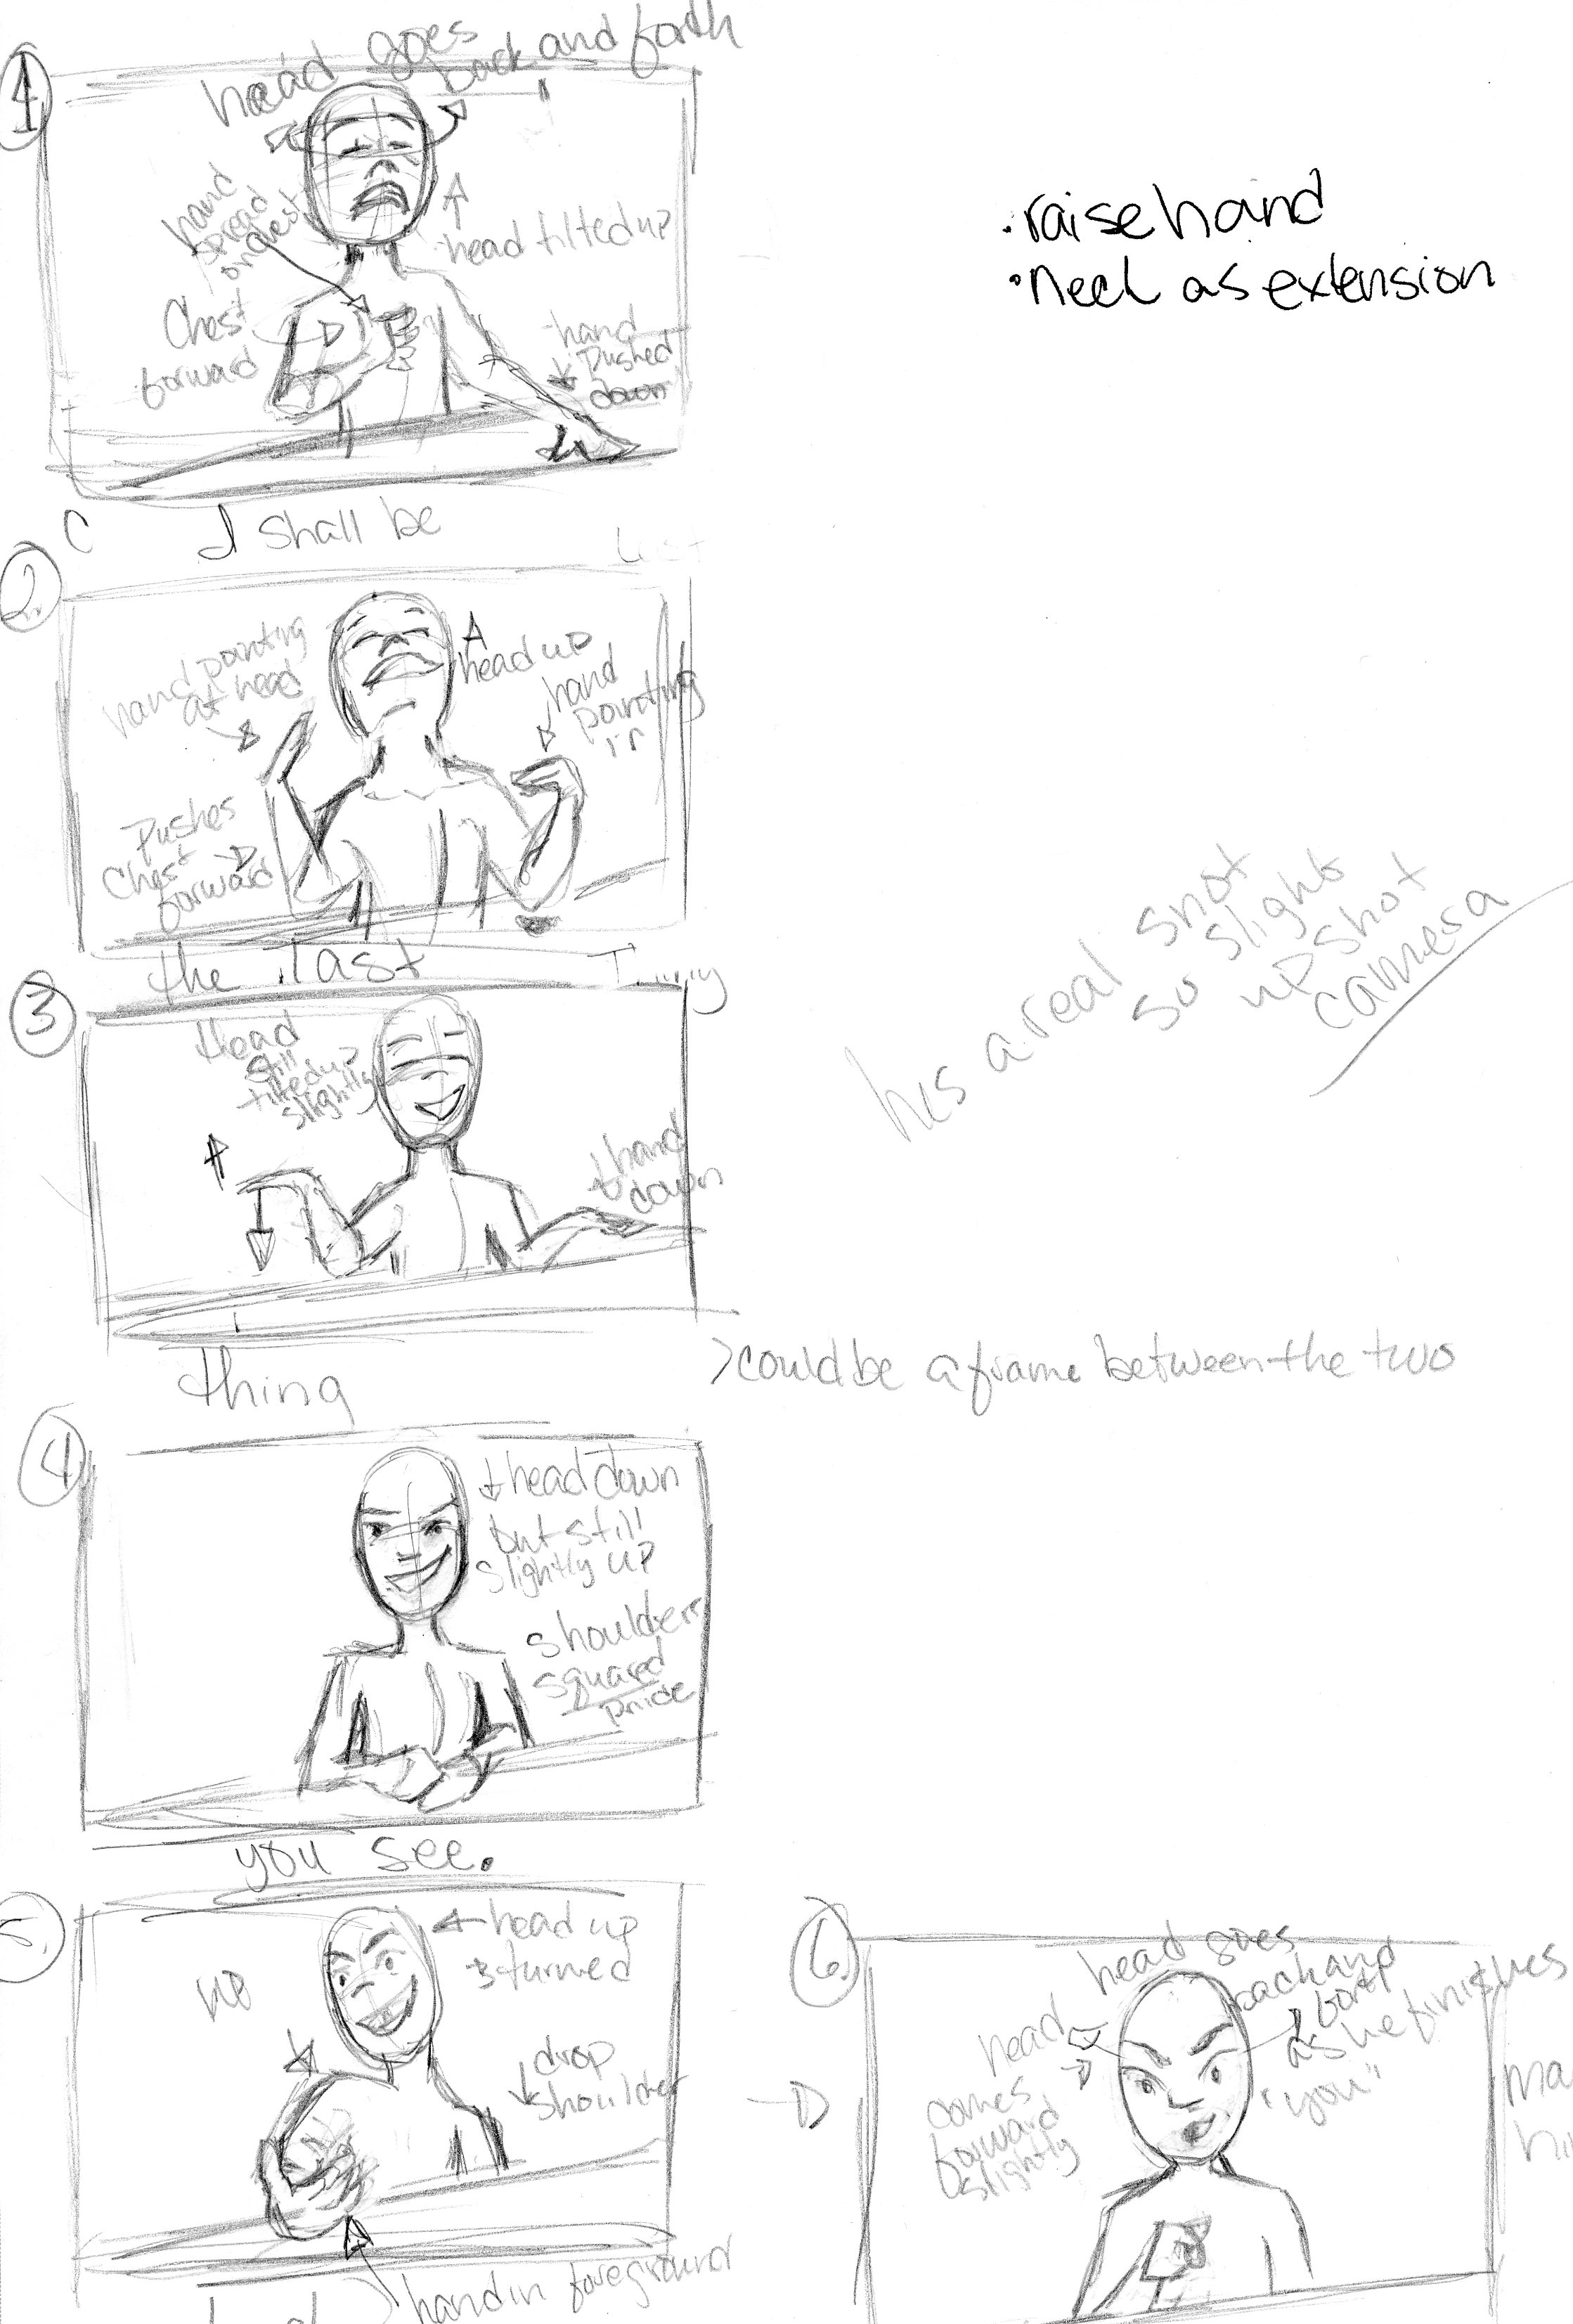 1
head goes
back and forth
hand
spread
on chest
head tilted up
Chest
forward
hand
pushed
down
• raise hand
• neck as extension
I shall be
2.
hand pointing
at head
head up
hand
pointing
in
Pushes
Chest
forward
the last
3
Head
still
tilted up
slightly
hand
down
has a real shot
so slight
up shot
camera
thing
could be a frame between the two
4
head down
but still
slightly up
shoulders
squared
pride
you see.
5.
head up
& turned
drop
shoulder
hand in foreground
6.
head goes
back and
forth
as he finishes
"you"
head
comes
forward
slightly